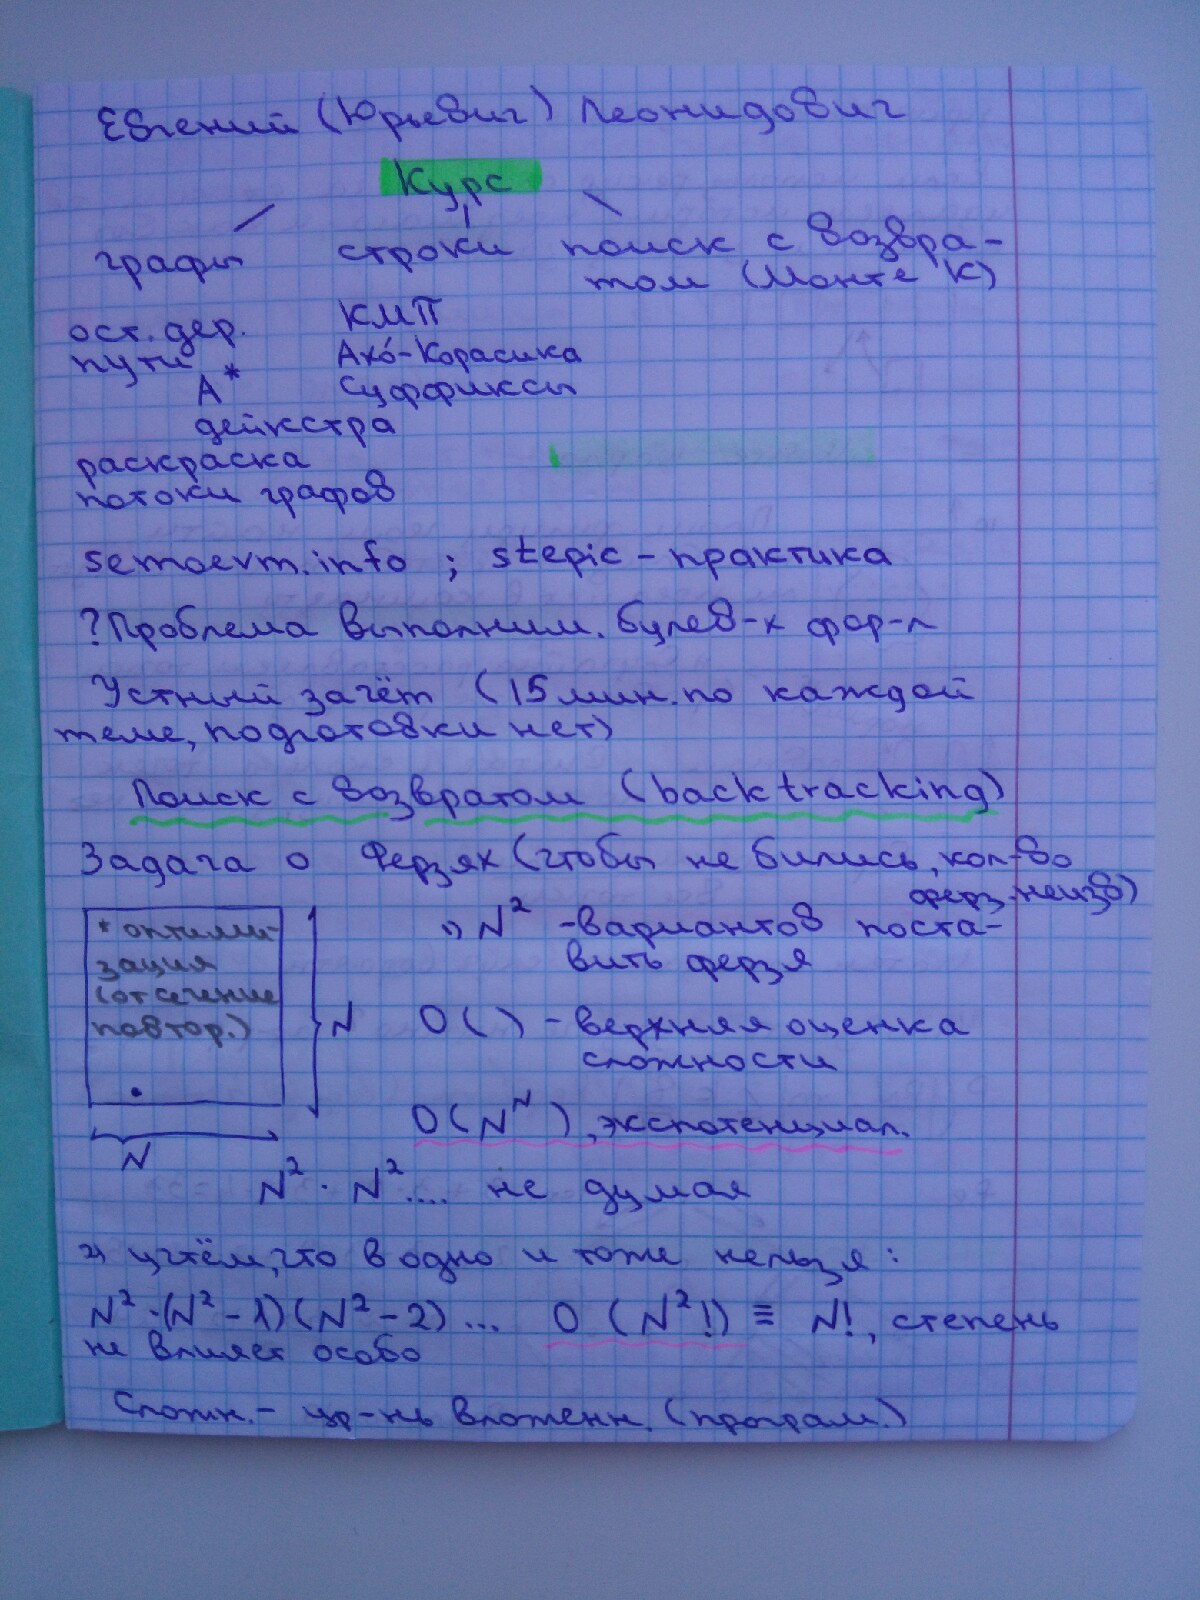 Евгений (Юрьевич) Леонидович
Курс
графы строки поиск с возвра-
том (Монте К)
ост. дер. КМП
пути Ахо́-Корасика
А* Суффиксы
дейкстра
раскраска
потоки графов
semoevm.info ; stepic - практика
? Проблема выполним. булев-х фор-л
Устный зачёт (15 мин. по каждой
теме, подготовки нет)
Поиск с возвратом (backtracking)
Задача о Ферзях (чтобы не бились, кол-во
ферз. неизв)
* оптими-
зация
(отсечение
повтор.)
N
N
1) N² - вариантов поста-
вить ферзя
O( ) - верхняя оценка
сложности
O(N^N), экспотенциал.
N² · N² .... не думая
2) учтём, что в одно и тоже нельзя:
N² · (N² - 1) (N² - 2) ... O (N²!) ≡ N!, степень
не влияет особо
Сложн. - ур-нь вложенн. (програм.)